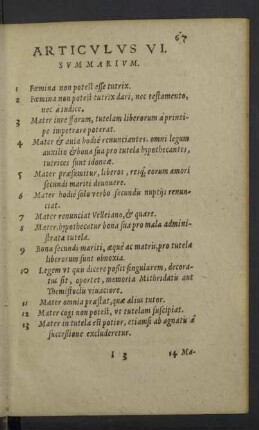 67
ARTICVLVS VI.
SVMMARIVM.
1 Fœmina non potest esse tutrix.
2 Fœmina non potest tutrix dari, nec testamento,
nec à iudice.
3 Mater iure ff orum, tutelam liberorum à princi-
pe impetrare poterat.
4 Mater & auia hodiè renunciantes omni legum
auxilio & bona sua pro tutela hypothecantes,
tutrices sunt idoneæ.
5 Mater præsumitur, liberos, resq; eorum amori
secundi mariti deuouere.
6 Mater hodiè solo verbo secundis nuptijs renun-
ciat.
7 Mater renunciat Velleiano, & quare.
8 Mater, hypothecatur bona sua pro mala admini-
strata tutela.
9 Bona secundi mariti, æquè ac matris, pro tutela
liberorum sunt obnoxia.
10 Legem vt quu dicere possit singularem, decora-
tus sit, oportet, memoria Mithridatis aut
Themistoclis viuaciore.
11 Mater omnia præstat, quæ alius tutor.
12 Mater cogi non potest, vt tutelam suscipiat.
13 Mater in tutela est potior, etiamsi ab agnatis à
successione excluderetur.
I 3
14 Ma-